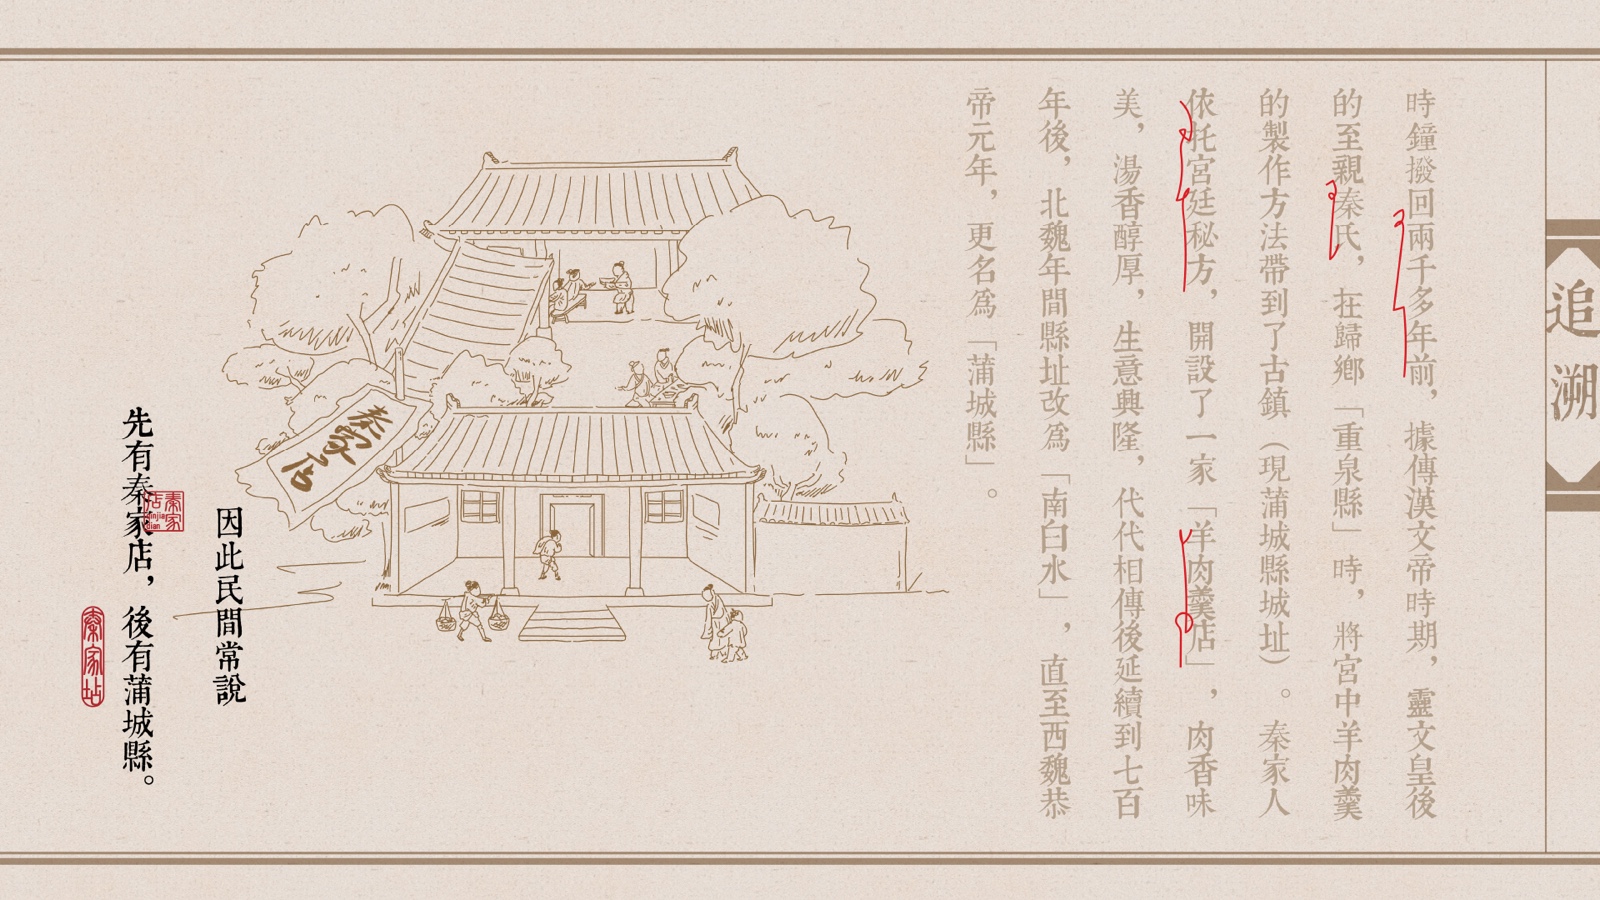 追溯
時鐘撥回兩千多年前，據傳漢文帝時期，靈文皇後
的至親秦氏，在歸鄉「重泉縣」時，將宮中羊肉羹
的製作方法帶到了古鎮（現蒲城縣城址）。秦家人
依托宮廷秘方，開設了一家「羊肉羹店」，肉香味
美，湯香醇厚，生意興隆，代代相傳後延續到七百
年後，北魏年間縣址改為「南白水」，直至西魏恭
帝元年，更名為「蒲城縣」。
秦家店
因此民間常說
先有秦家店，後有蒲城縣。
秦家店
qinjiadian
秦家坫